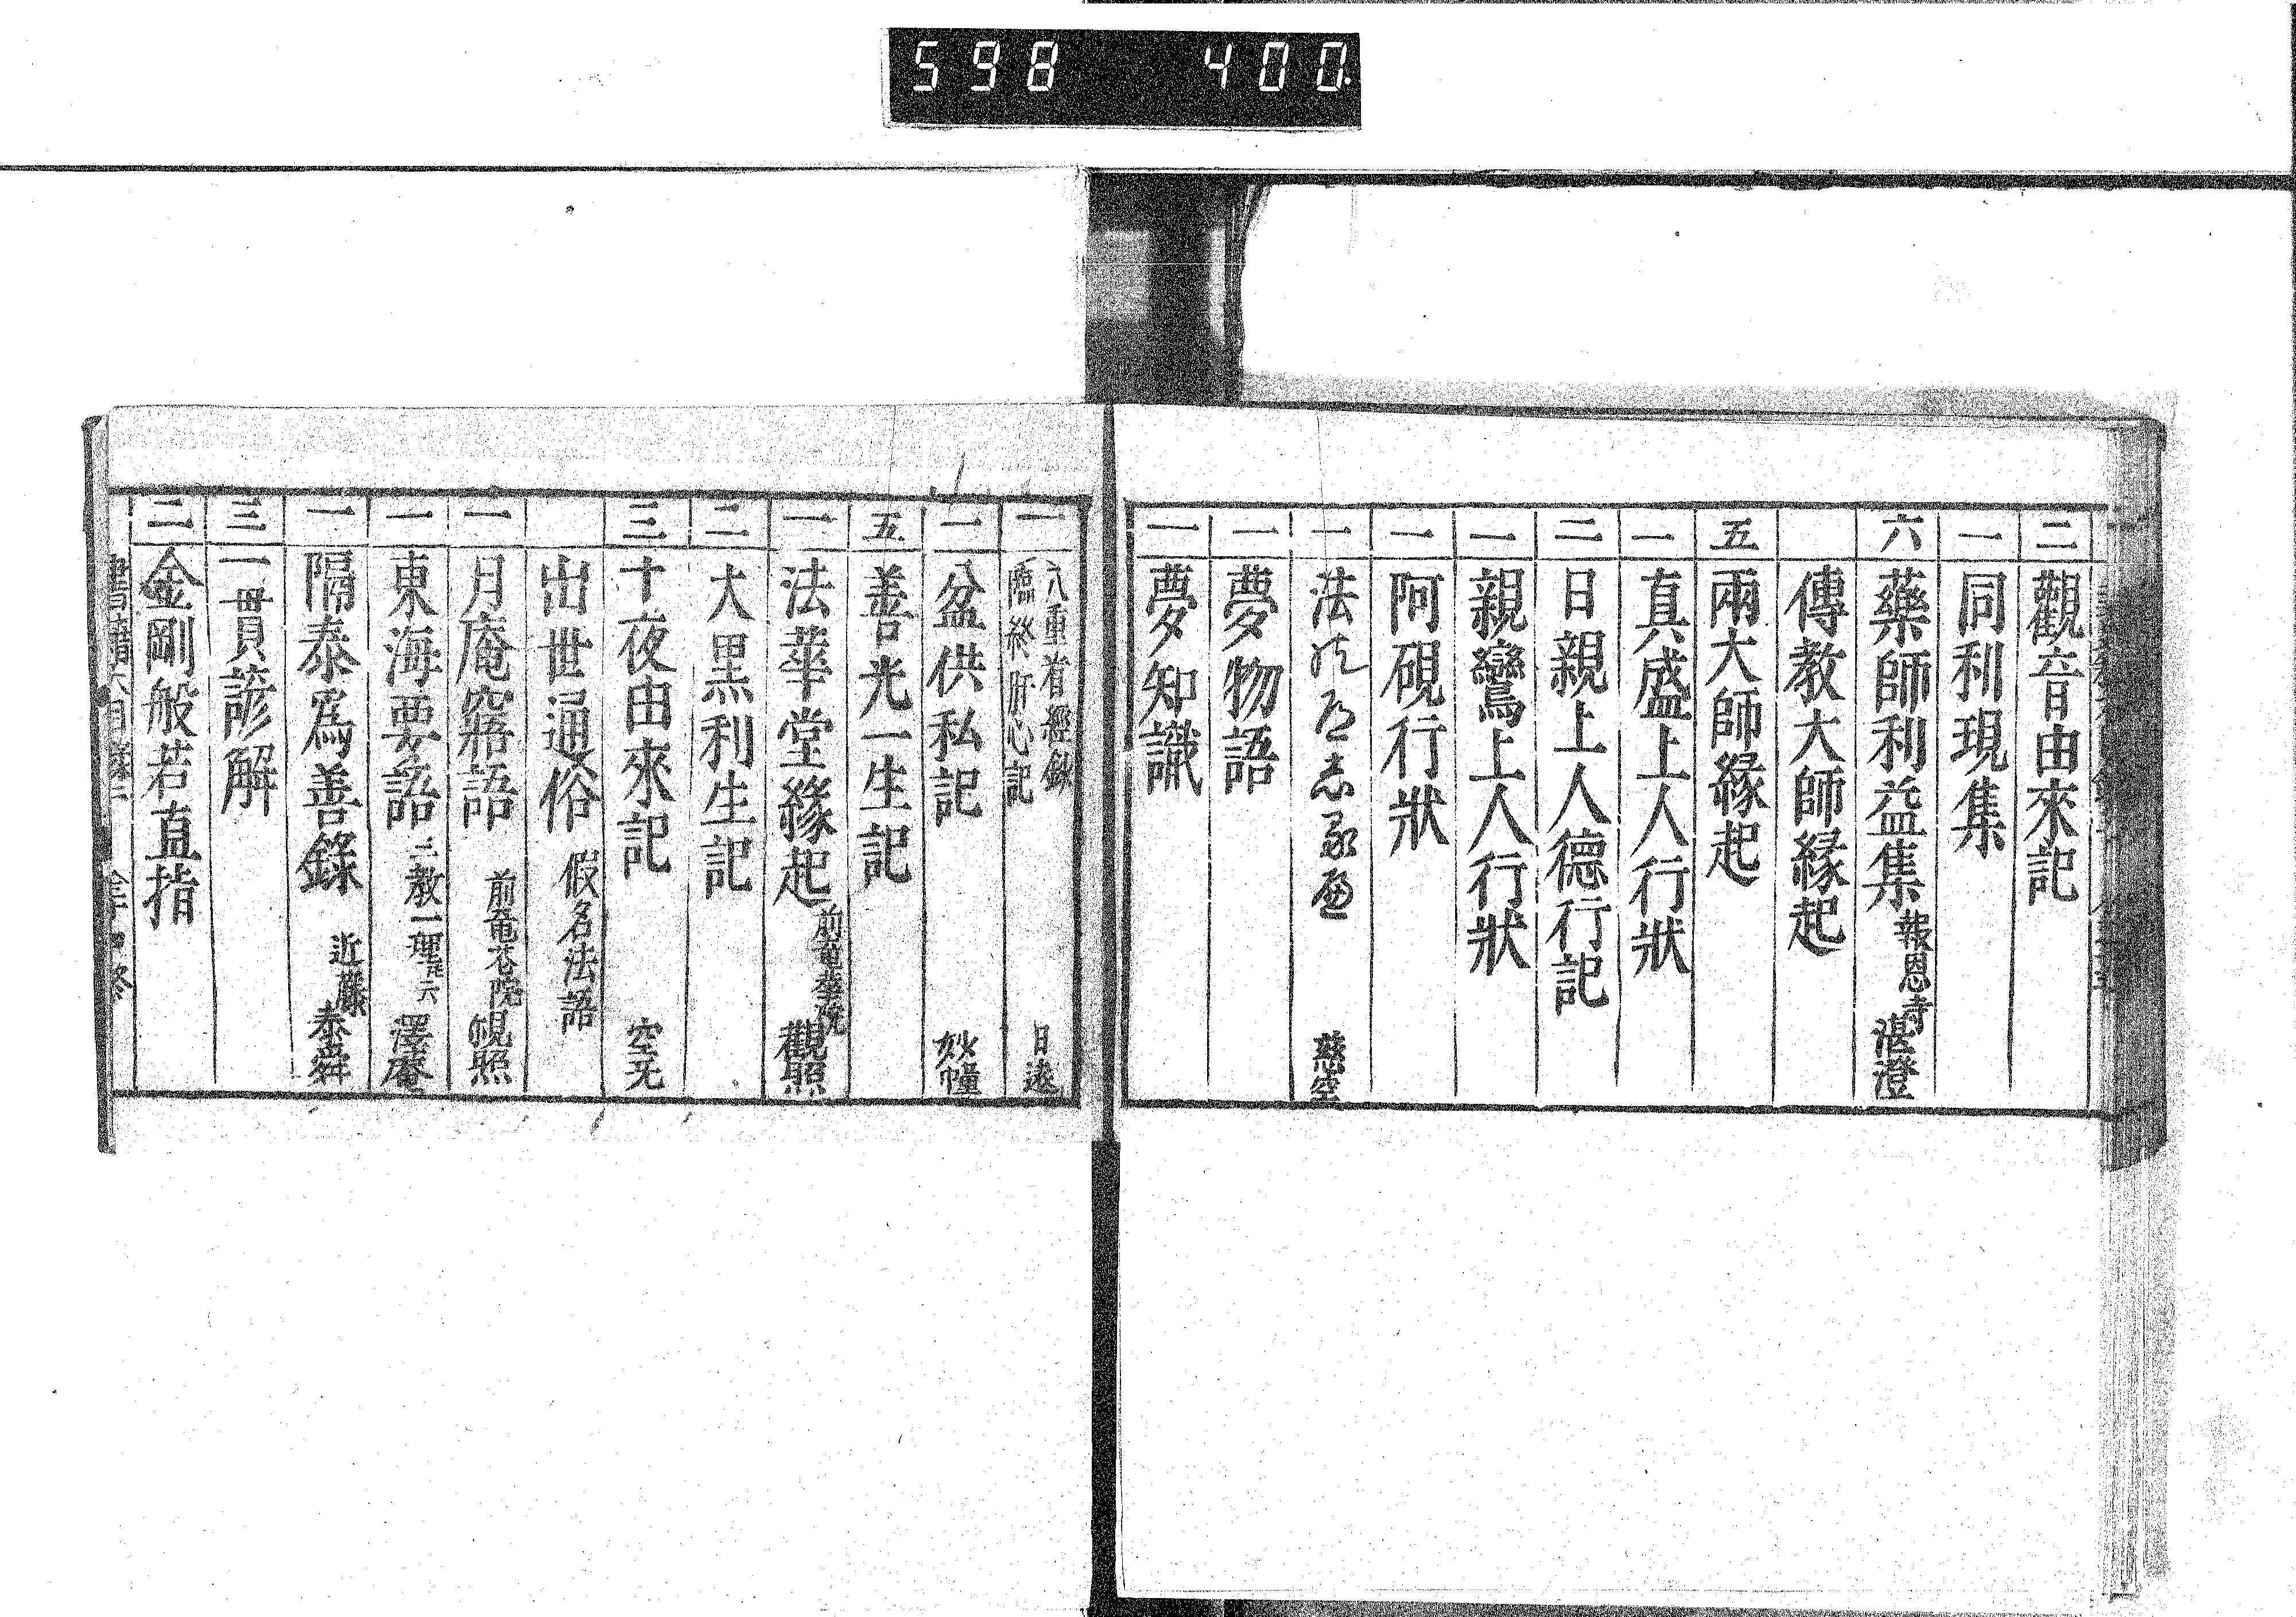 598 400.
二 觀音由來記
一 同利現集
六 藥師利益集 報恩寺 湛澄
傳教大師緣起
五 兩大師緣起
一 真盛上人行狀
二 日親上人德行記
一 親鸞上人行狀
一 阿硯行狀
一 法 慈空
一 夢物語
一 夢知識
一 八重省經鈔
臨終肝心記 日遠
一 盆供私記 妙幢
五 善光一生記
一 法華堂緣起 前竜華院 觀照
二 大黑利生記
三 十夜由來記 空无
出世通俗 假名法語
一 月庵寤語 前竜華院 規照
一 東海要語 二教一理 六 澤庵
一 隔泰爲善錄 近藤 泰舜
三 一貫諺解
二 金剛般若直指